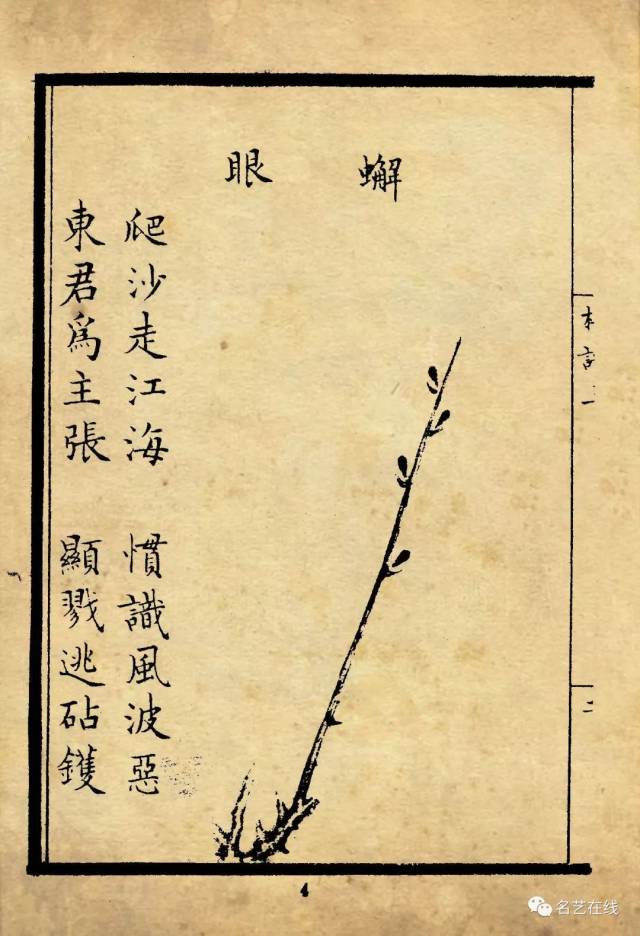 蠏眼
爬沙走江海 慣識風波惡
東君爲主張 顯戮逃砧鑊
二
4
名艺在线